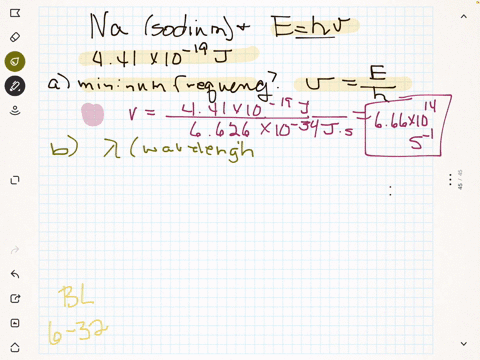 Na (sodium) + E=hν
4.41 x10⁻¹⁹ J
a) minimum frequency? ν = E/h
ν = 4.41 x10⁻¹⁹ J / 6.626 x10⁻³⁴ J·s = 6.66 x10¹⁴ s⁻¹
b) λ (wavelengh
BL
6-32
45 / 45